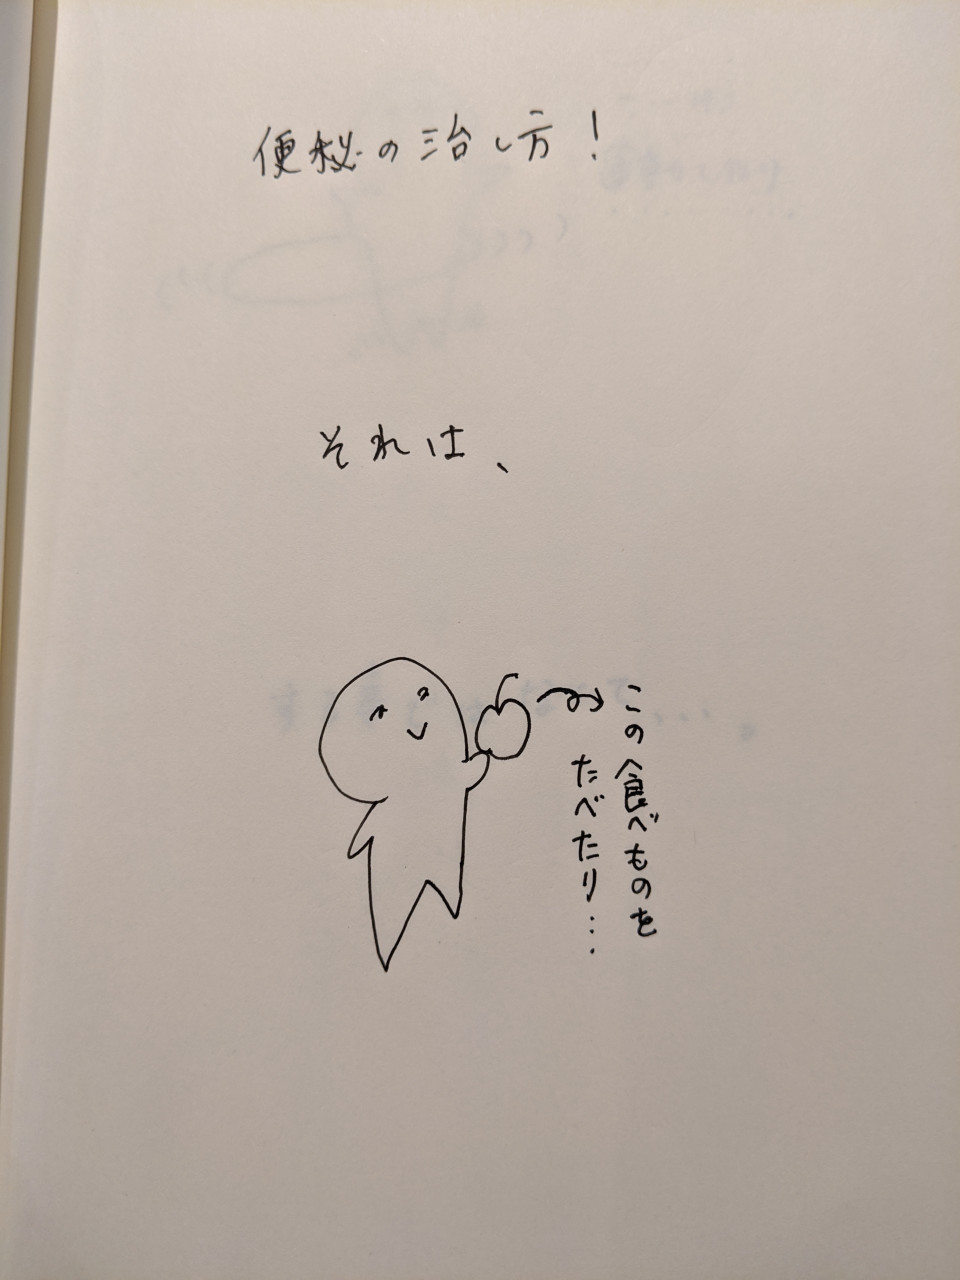 便秘の治し方！
それは、
この食べものを
たべたり…